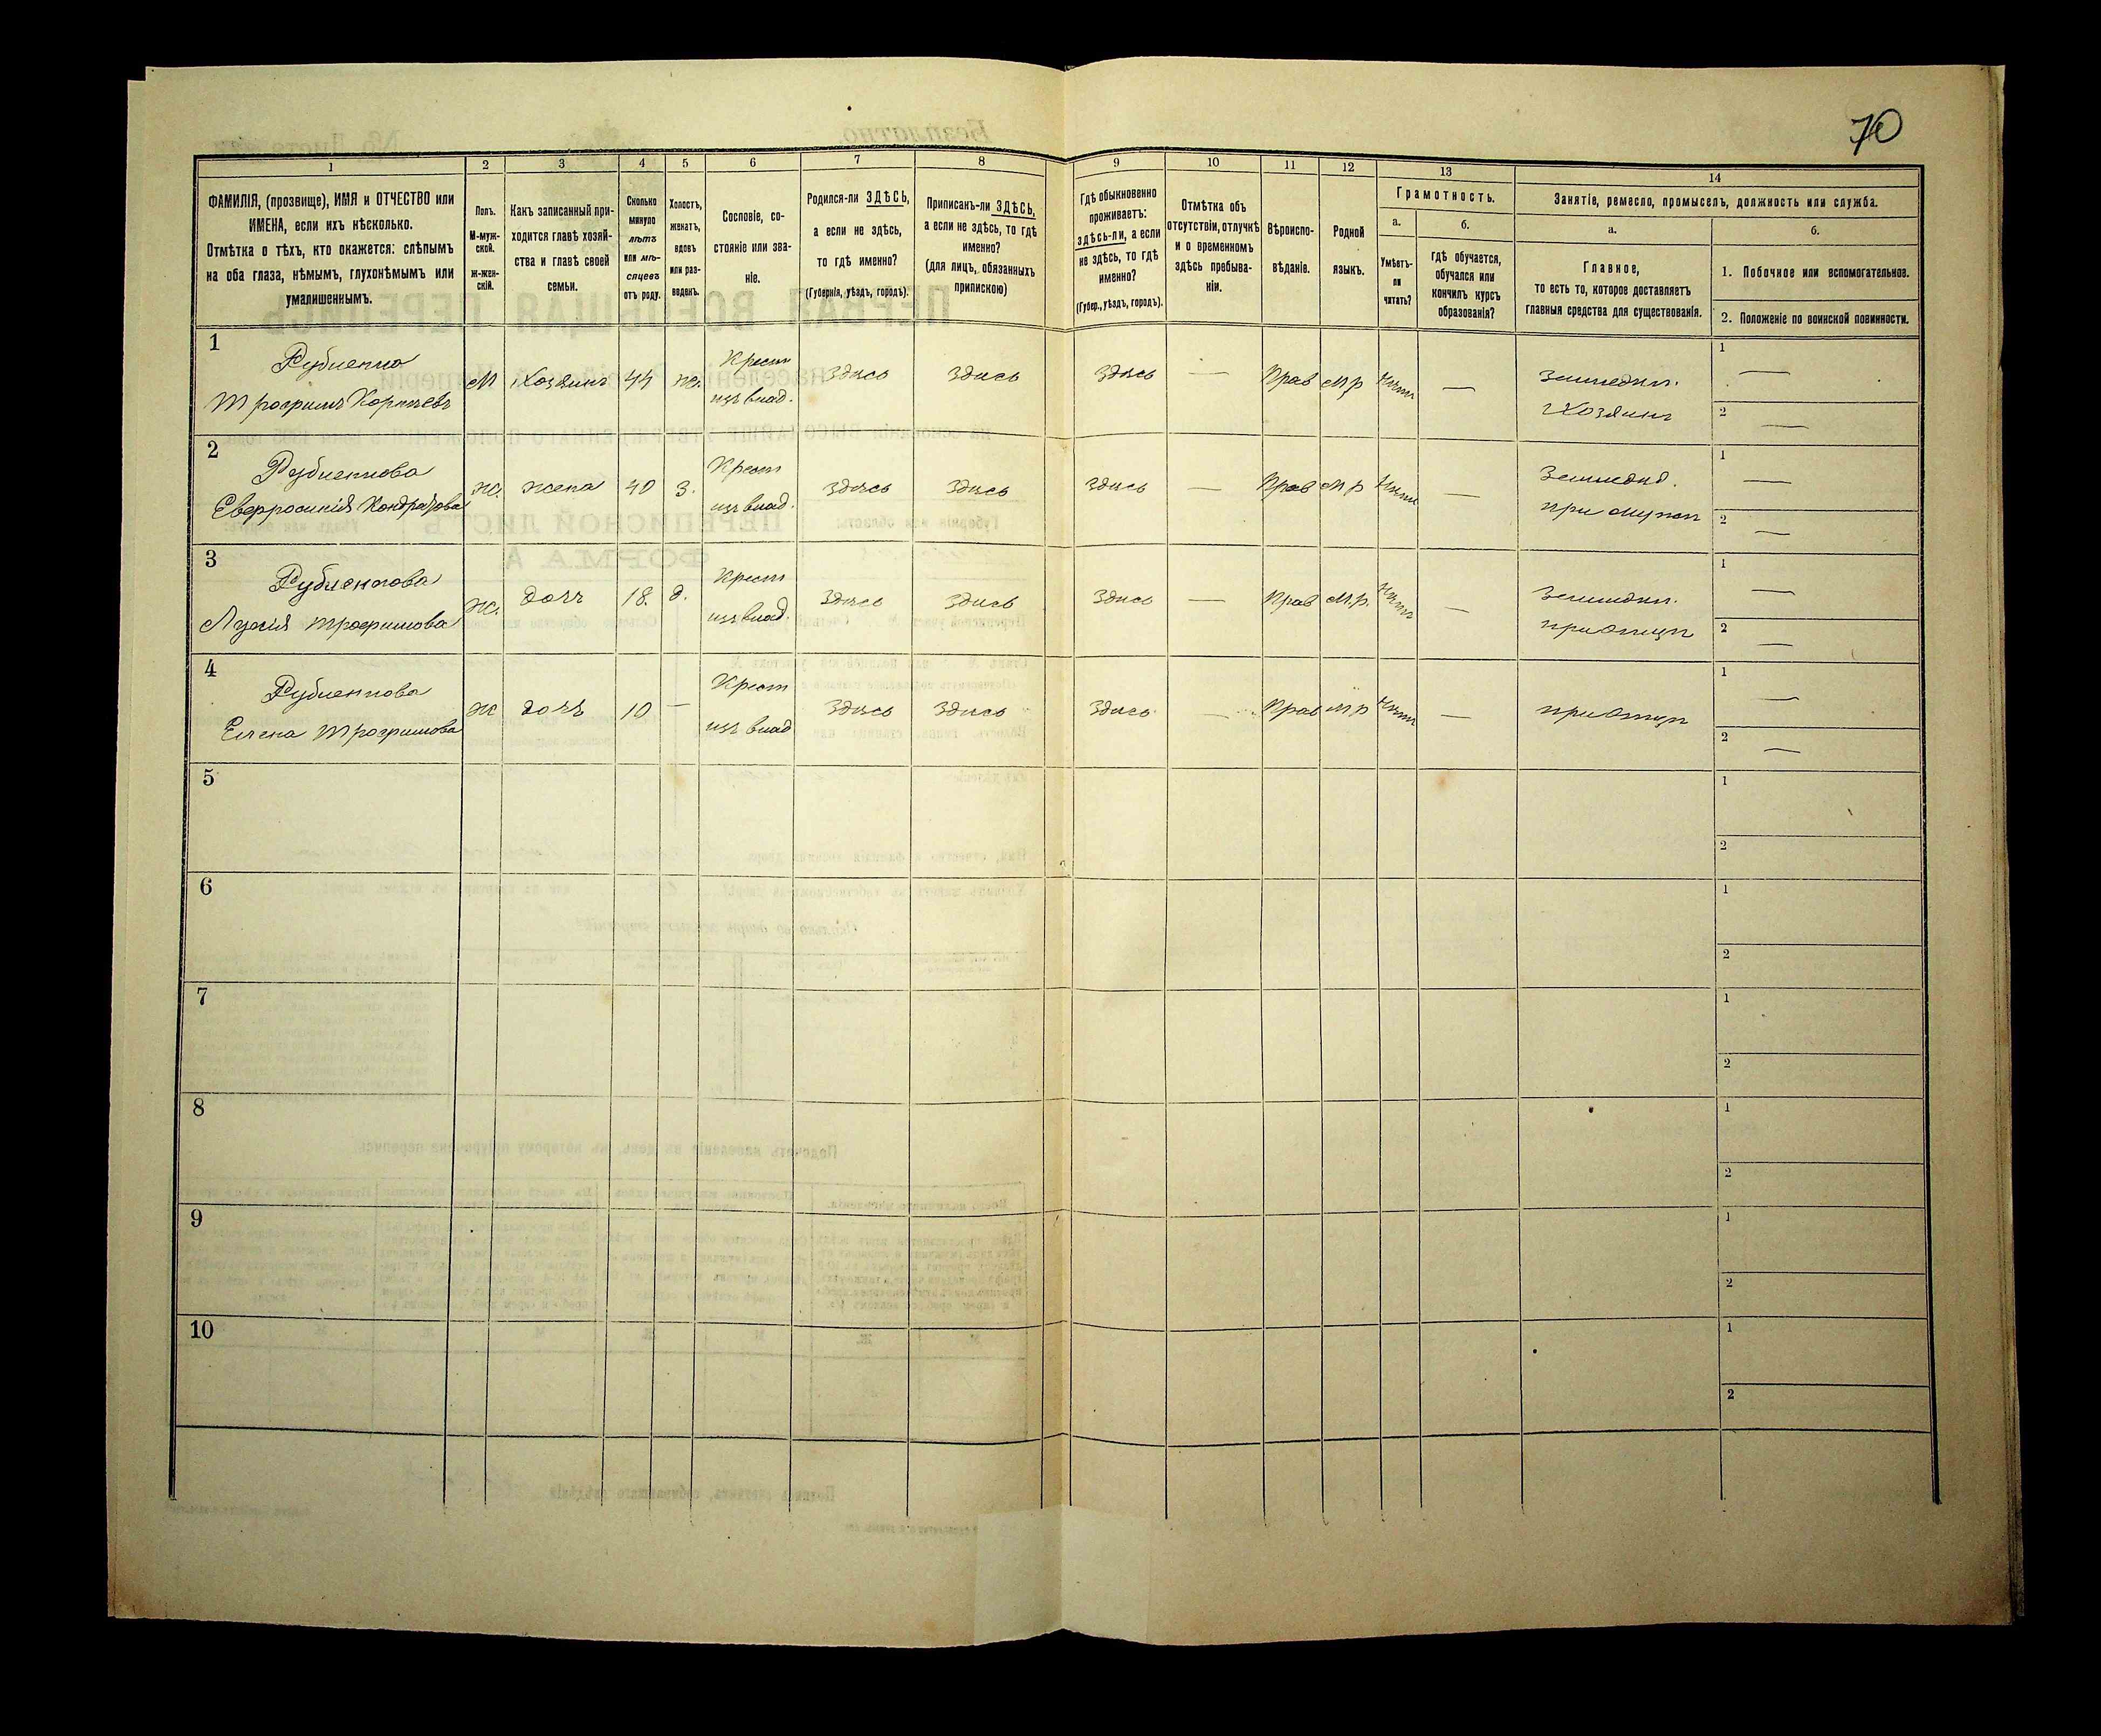 70
1
2
3
4
5
6
7
8
9
10
11
12
13
14
ФАМИЛІЯ, (прозвище), ИМЯ и ОТЧЕСТВО или
ИМЕНА, если ихъ нѣсколько.
Отмѣтка о тѣхъ, кто окажется: слѣпымъ
на оба глаза, нѣмымъ, глухонѣмымъ или
умалишеннымъ.
Полъ.
М-муж-
ской.
Ж-жен-
скій.
Какъ записанный при-
ходится главѣ хозяй-
ства и главѣ своей
семьи.
Сколько
минуло
лѣтъ
или мѣ-
сяцевъ
отъ роду.
Холостъ,
женатъ,
вдовъ
или раз-
веденъ.
Сословіе, со-
стояніе или зва-
ніе.
Родился-ли ЗДѢСЬ,
а если не здѣсь,
то гдѣ именно?
(Губернія, уѣздъ, городъ).
Приписанъ-ли ЗДѢСЬ,
а если не здѣсь, то гдѣ
именно?
(для лицъ, обязанныхъ
припискою)
Гдѣ обыкновенно
проживаетъ:
здѣсь-ли, а если
не здѣсь, то гдѣ
именно?
(Губер., уѣздъ, городъ).
Отмѣтка объ
отсутствіи, отлучкѣ
и о временномъ
здѣсь пребыва-
ніи.
Вѣроиспо-
вѣданіе.
Родной
языкъ.
Грамотность.
а.
б.
Умѣетъ-
ли
читать?
гдѣ обучается,
обучался или
кончилъ курсъ
образованія?
Занятіе, ремесло, промыселъ, должность или служба.
а.
б.
Главное,
то есть то, которое доставляетъ
главныя средства для существованія.
1. Побочное или вспомогательное.
2. Положеніе по воинской повинности.
1
М Хозяинъ 44 ж. Крест здѣсь здѣсь здѣсь — Прав м р нѣтъ — Земледѣл. 1 —
изъ влад. Хозяинъ 2 —
2
Ж. жена 40 з. Крест здѣсь здѣсь здѣсь — Прав м р нѣтъ — Земледѣл. 1 —
изъ влад. при мужѣ 2 —
3
Ж. дочь 18. д. Крест здѣсь здѣсь здѣсь — Прав м.р. нѣтъ — Земледѣл. 1 —
Трофимова изъ влад. при отцѣ 2 —
4
Ж дочь 10 — Крест здѣсь здѣсь здѣсь — Прав м р нѣтъ — при отцѣ 1 —
Елена Трофимова изъ влад 2 —
5
1
2
6
1
2
7
1
2
8
1
2
9
1
2
10
1
2